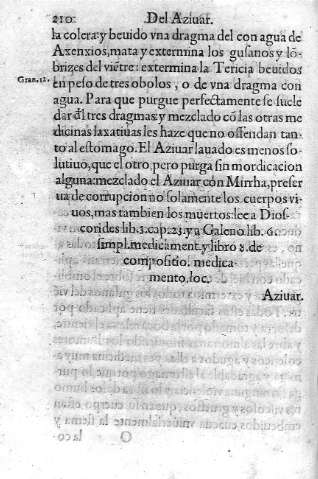 210. Del Aziuar.
la colera: y beuido vna dragma del con agua de
Axenxios, mata y extermina los gusanos y lõ-
brizes del viẽtre: extermina la Tericia beuidos
Gran. 12. en peso de tres obolos, o de vna dragma con
agua. Para que purgue perfectamente se suele
dar dl tres dragmas, y mezclado cõ las otras me
dicinas laxatiuas les haze que no offendan tan-
to al estomago. El Aziuar lauado es menos so-
lutiuo, que el otro, pero purga sin mordicacion
alguna: mezclado el Aziuar con Mirrha, preser
ua de corrupcion no solamente los cuerpos vi-
uos, mas tambien los muertos: lee a Dios-
corides lib. 3. cap. 23. y a Galeno lib. 6.
simpl. medicament. y libro 8. de
compositio. medica-
mento. loc.
Aziuar.